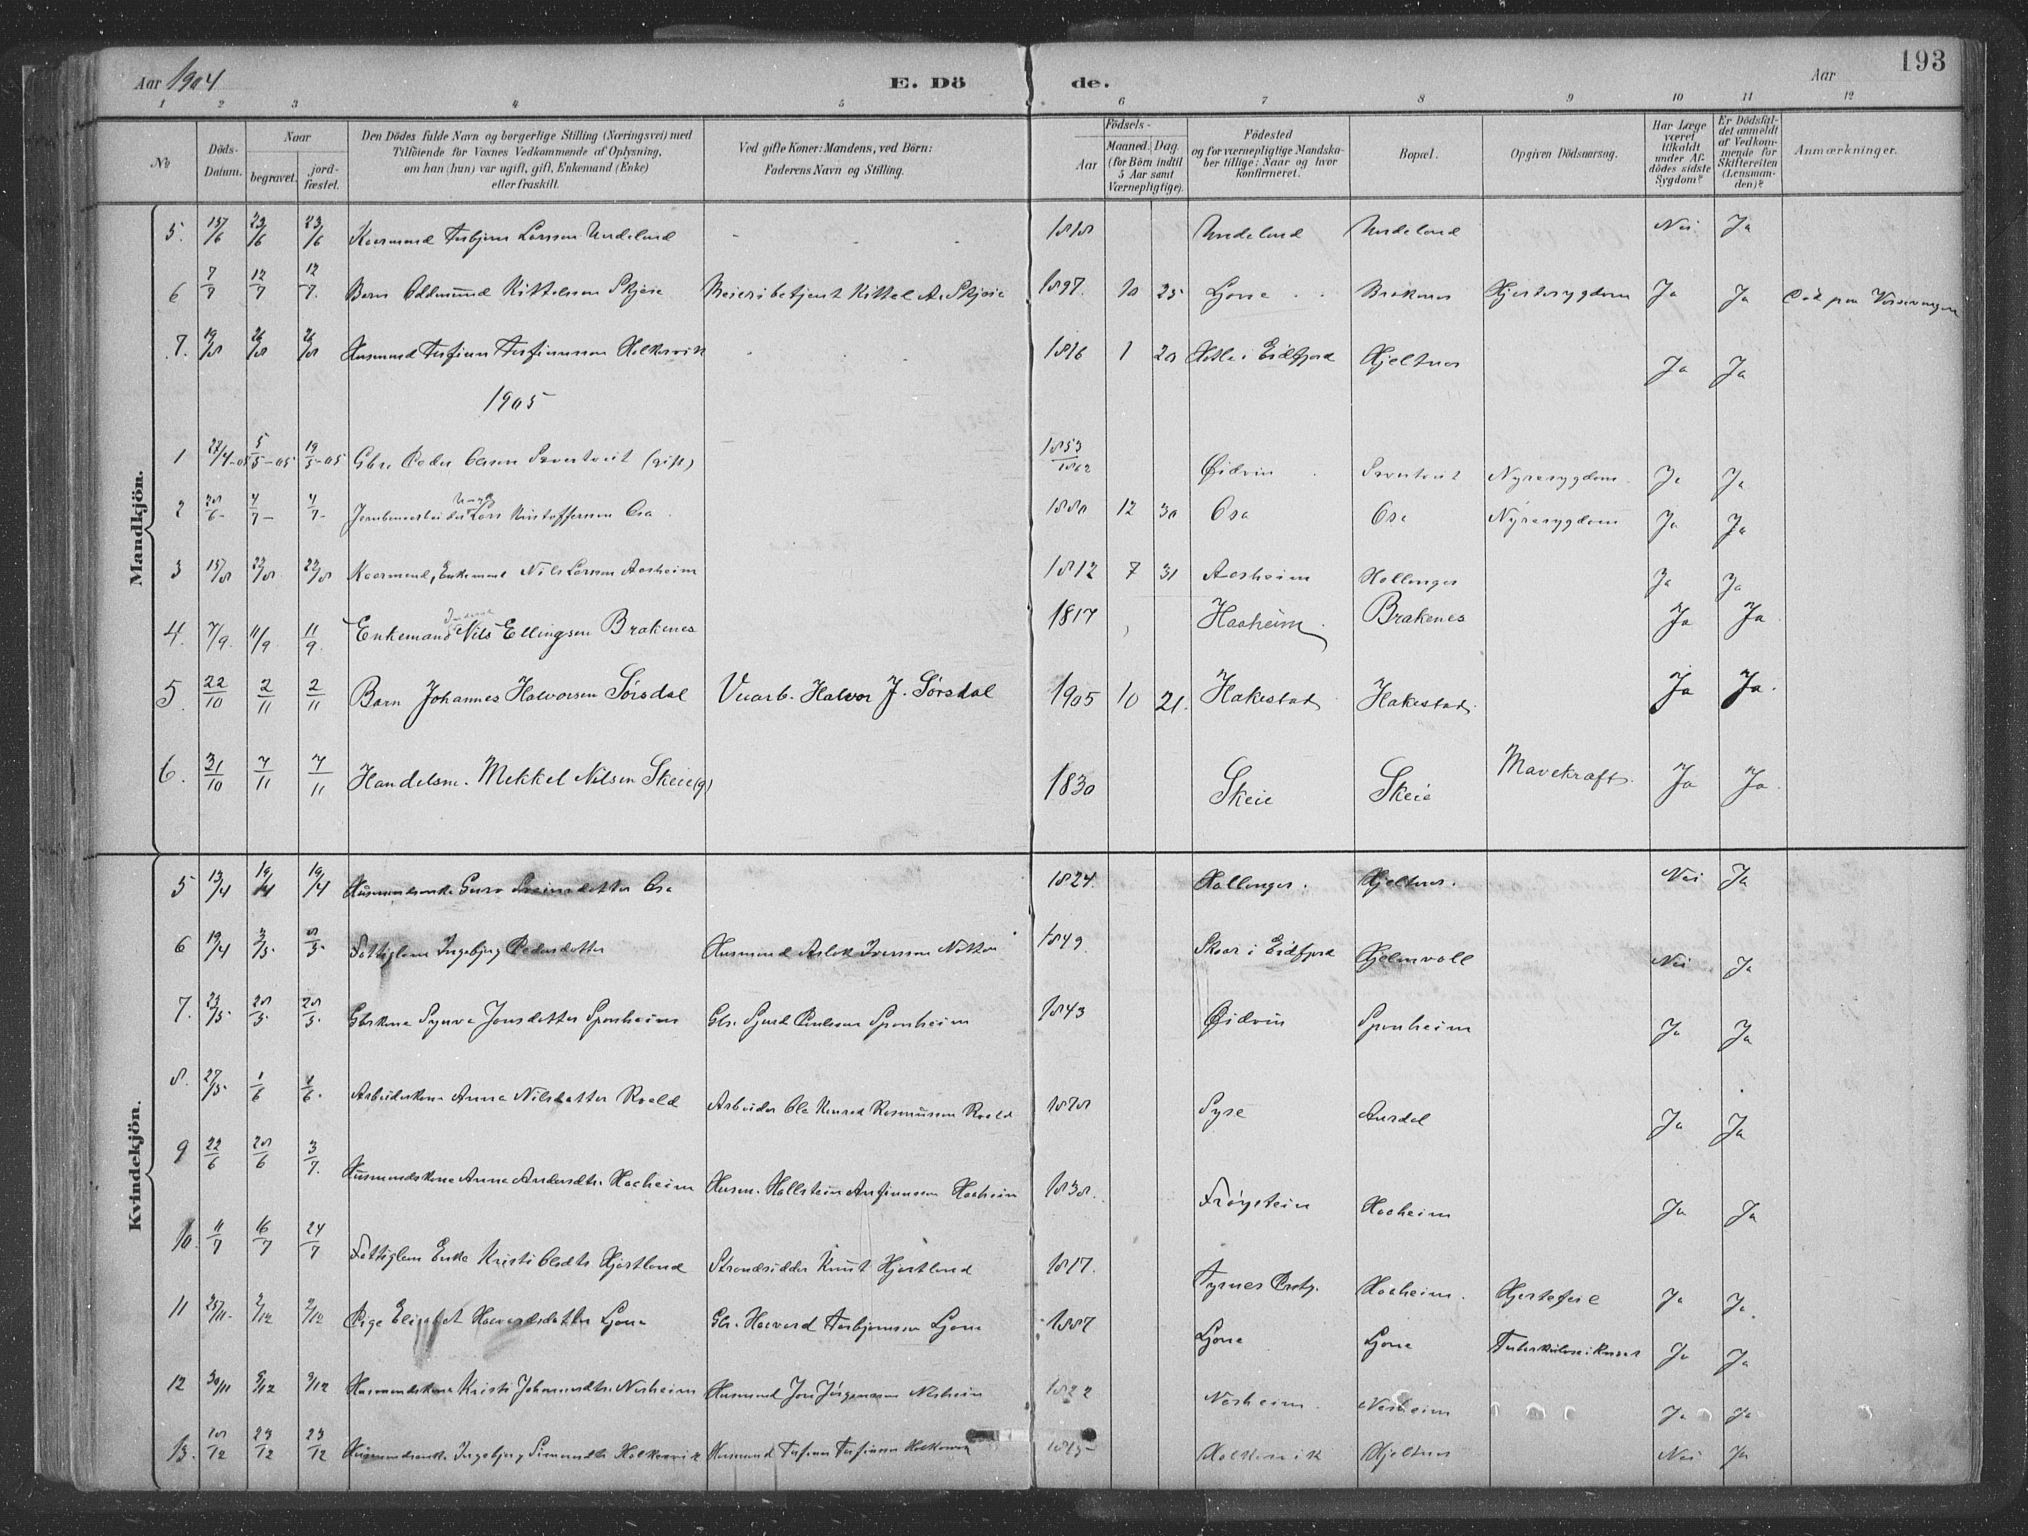 Aar 1904 E. Dö de. Aar 193
1 2 3 4 5 6 7 8 9 10 11 12
No
Döds-Datum.
Naar
begravet.
jord-fæstet.
Den Dödes fulde Navn og borgerlige Stilling (Næringsvei) med
Tilföiende for Voxnes Vedkommende af Oplysning,
om han (hun) var ugift, gift, Enkemand (Enke)
eller fraskilt.
Ved gifte Koner: Mandens, ved Börn:
Faderens Navn og Stilling.
Födsels-
Aar
Maaned. Dag.
(for Börn indtil
5 Aar samt
Værnepligtige).
Födested
og for værnepligtige Mandska-
ber tillige: Naar og hvor
Konfirmeret.
Bopæl.
Opgiven Dödsaarsag.
Har Læge
været
tilkaldt
under Af-
dödes sidste
Sygdom?
Er Dödsfal-
det anmeldt
af Vedkom-
mende for
Skifteretten
(Lensman-
den)?
Anmærkninger.
Mandkjön.
5. 15/6 23/6 23/6 Kaarmand Torbjørn Larssen Undeland 1818 Undeland Undeland Nei Ja
6 7/7 12/7 12/7. Barn Oddmund Kittelsen Skjeie Meieribetjent Kittel A. Skjeie 1897. 10 25 Ljone Brakenes Hjertesygdom Ja Ja Död paa Vossevangen
7. 19/8 26/8 26/8 Husmand Torfinn Torfinnssen Holkesvik 1816 1 20 Hotle i Eidfjord Hjeltnes Ja Ja
1905
1 27/4-05 5/5-05 19/5-05 Gbr. Peder Olsen Svartveit (gift) 1853/1862 Øidvin Svartveit Nyresygdom Ja Ja
2 28/6- 4/7- 4/7- Jernbanearbeider Ungk Lars Kristoffersen Osa 1880 12 30 Osa Osa Nyresygdom Ja Ja
3 15/8 22/8. 22/8 Kaarmand, Enkemand Nils Larssen Aasheim 1812 7 31 Aasheim Hallanger Ja Ja
4. 7/9. 11/9 11/9. Enkemand Nils Ellingsen Brakenes 1817 Haaheim. Brakenes Ja Ja.
5. 22/10 2/11 2/11 Barn Johannes Halvorsen Sørsdal Veiarb. Halvor J. Sørsdal 1905 10 21. Hakestad Hakestad. Ja Ja.
6. 31/10 7/11 7/11 Handelsm. Mekkel Nilsen Skeie (g) 1830 Skeie Skeie Mavekræft. Ja Ja.
Kvindekjön.
5 13/4 19/4 19/4 Husmandsenke Guro Sveinsdotter Osa 1824. Hallanger. Hjeltnes. Nei Ja
6 19/4 3/5. 8/5. Fattiglem Ingebjørg Pedersdotter Husmand Aslak Iverssen 1849 Skaar i Eidfjord Hjelmvoll Nei Ja
7. 23/5. 28/5. 28/5. Gbrkone Synva Jonsdotter Sponheim Gbr. Sjurd Paulssen Sponheim 1843 Øidvin Sponheim Ja Ja
8. 27/5. 1/6 1/6. Arbeiderkone Anna Nilsdotter Roald Arbeider Ole Konrad Rasmussen Roald 1878 Syse Aurdal Ja Ja
9 22/6 28/6 3/7. Husmandskone Anna Andersdtr. Haaheim Husm. Hallstein Anfinnssen Haaheim 1838. Frøystein Haaheim Ja Ja
10. 11/7 16/7 24/7 Fattiglem Enke Kristi Olsdtr Hjartland Strandsidder Knut Hjartland 1817. Tysnes Prstg. Haaheim. Hjertefeil Ja Ja.
11 25/11. 2/12 2/12 Pige Elisabet Haavardsdatter Ljone Gbr. Haavard Torbjørnssen Ljone 1887 Ljone Ljone Ja Ja
12 30/11 9/12 9/12 Husmandskone Kristi Johannesdtr. Nesheim Husmand Jon Jörgensen Nesheim 1822 Nesheim. Nesheim Ja Ja
13. 18/12 23/12 23/12 Husmandsenke Ingebjørg Simonsdtr Holkesvik Husmand Torfinn Torfinnssen Holkesvik 1815 Holkesvik Hjeltnes Nei Ja